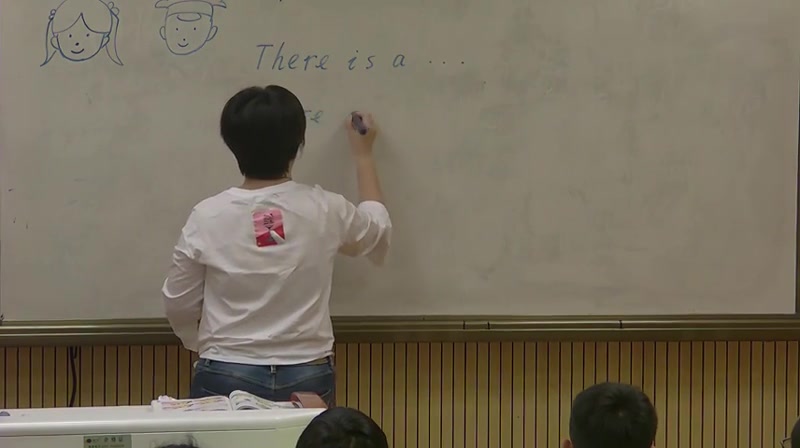 There is a ...
re